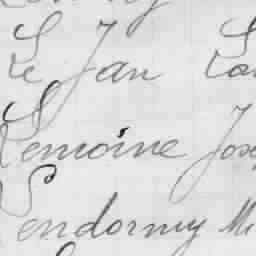 Le Jan
Lemoine Jose
Lendormy M